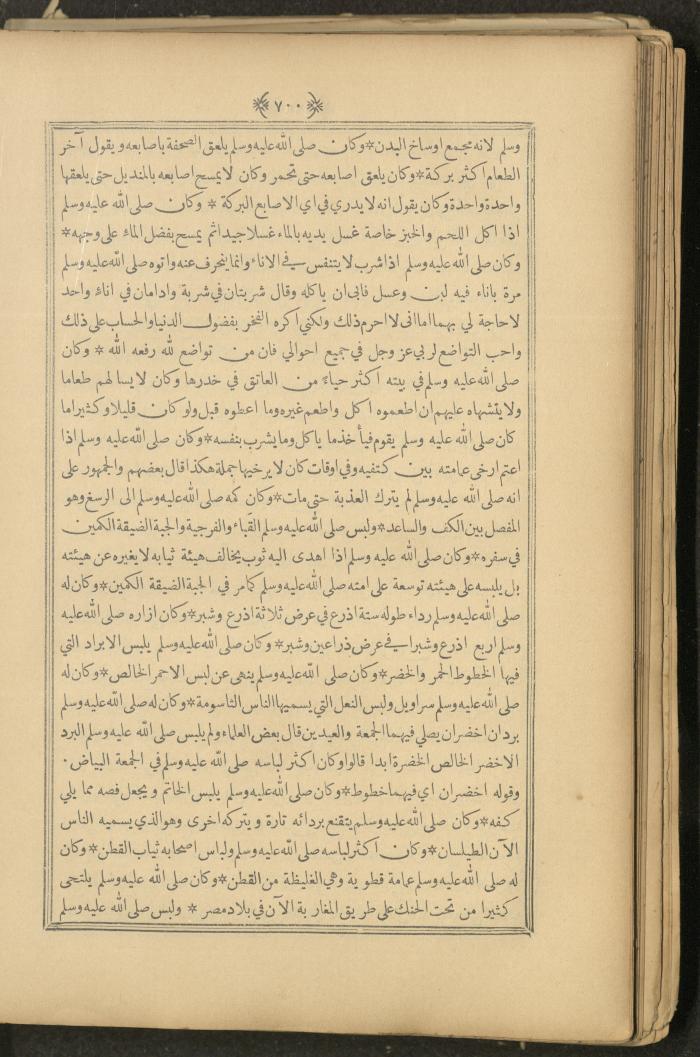 ٧٠٠
وسلم لانه مجمع اوساخ البدن*وكان صلى الله عليه وسلم يلعق الصحفة باصابعه ويقول آخر
الطعام اكثر بركة*وكان يلعق اصابعه حتى تحمر وكان لا يمسح اصابعه بالمنديل حتى يلعقها
واحدة واحدة وكان يقول انه لا يدري في اي الاصابع البركة * وكان صلى الله عليه وسلم
اذا اكل اللحم والخبز خاصة غسل يديه بالماء غسلا جيدا ثم يمسح بفضل الماء على وجهه*
وكان صلى الله عليه وسلم اذ اشرب لا يتنفس في الاناء وانما ينحرف عنه واتوه صلى الله عليه وسلم
مرة باناء فيه لبن وعسل فابى ان ياكله وقال شربتان في شربة وادامان في اناء واحد
لا حاجة لي بهما اما انى لا احرم ذلك ولكني اكره الفخر بفضول الدنيا والحساب على ذلك
واحب التواضع لربي عز وجل في جميع احوالي فان من تواضع لله رفعه الله * وكان
صلى الله عليه وسلم في بيته اكثر حياء من العاتق في خدرها وكان لا يسالهم طعاما
ولا يتشهاه عليهم ان اطعموه اكل واطعم غيره وما اعطوه قبل ولو كان قليلا وكثيرا ما
كان صلى الله عليه وسلم يقوم فيأخذ ما ياكل وما يشرب بنفسه*وكان صلى الله عليه وسلم اذا
اعتم ارخى عمامته بين كتفيه وفي اوقات كان لا يرخيها جملة هكذا قال بعضهم والجمهور على
انه صلى الله عليه وسلم لم يترك العذبة حتى مات*وكان كمه صلى الله عليه وسلم الى الرسغ وهو
المفصل بين الكف والساعد*ولبس صلى الله عليه وسلم القباء والفرجية والجبة الضيقة الكمين
في سفره*وكان صلى الله عليه وسلم اذا اهدى اليه ثوب يخالف هيئة ثيابه لا يغيره عن هيئته
بل يلبسه على هيئته توسعة على امته صلى الله عليه وسلم كما مر في الجبة الضيقة الكمين*وكان له
صلى الله عليه وسلم رداء طوله ستة اذرع في عرض ثلاثة اذرع وشبر*وكان ازاره صلى الله عليه
وسلم اربع اذرع وشبرا في عرض ذراعين وشبر* وكان صلى الله عليه وسلم يلبس الابراد التي
فيها الخطوط الحمر والخضر*وكان صلى الله عليه وسلم ينهى عن لبس الاحمر الخالص*وكان له
صلى الله عليه وسلم سراويل ولبس النعل التي يسميها الناس التاسومة*وكان له صلى الله عليه وسلم
بردان اخضران يصلي فيهما الجمعة والعيدين قال بعض العلماء ولم يلبس صلى الله عليه وسلم البرد
الاخضر الخالص الخضرة ابدا قالوا وكان اكثر لباسه صلى الله عليه وسلم في الجمعة البياض.
وقوله اخضران اي فيهما خطوط*وكان صلى الله عليه وسلم يلبس الخاتم و يجعل فصه مما يلي
كفه*وكان صلى الله عليه وسلم يتقنع بردائه تارة ويتركه اخرى وهو الذي يسميه الناس
الآن الطيلسان*وكان اكثر لباسه صلى الله عليه وسلم ولباس اصحابه ثياب القطن*وكان
له صلى الله عليه وسلم عمامة قطوية وهي الغليظة من القطن*وكان صلى الله عليه وسلم يلتحى
كثيرا من تحت الحنك على طريق المغاربة الآن في بلاد مصر * ولبس صلى الله عليه وسلم